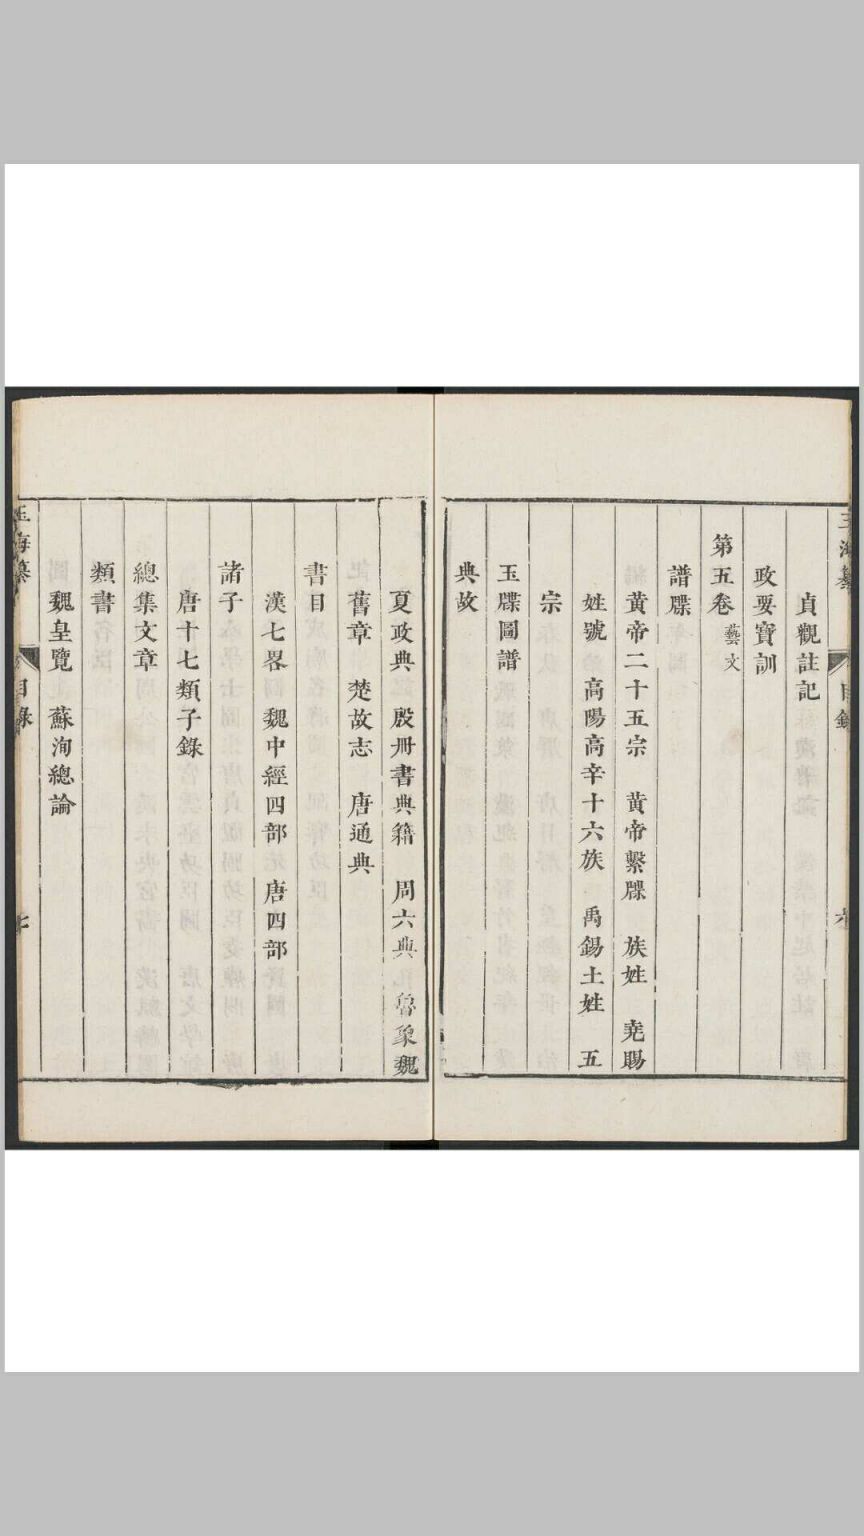 貞觀註記
政要寶訓
第五卷 藝文
譜牒
黃帝二十五宗 黃帝繫牒 族姓 堯賜
姓號 高陽高辛十六族 禹錫土姓 五
宗
玉牒圖譜
典故
夏政典 殷冊書典籍 周六典 魯象魏
舊章 楚故志 唐通典
書目
漢七畧 魏中經四部 唐四部
諸子
唐十七類子錄
總集文章
類書
魏皇覽 蘇洵總論
玉海纂 目錄 七